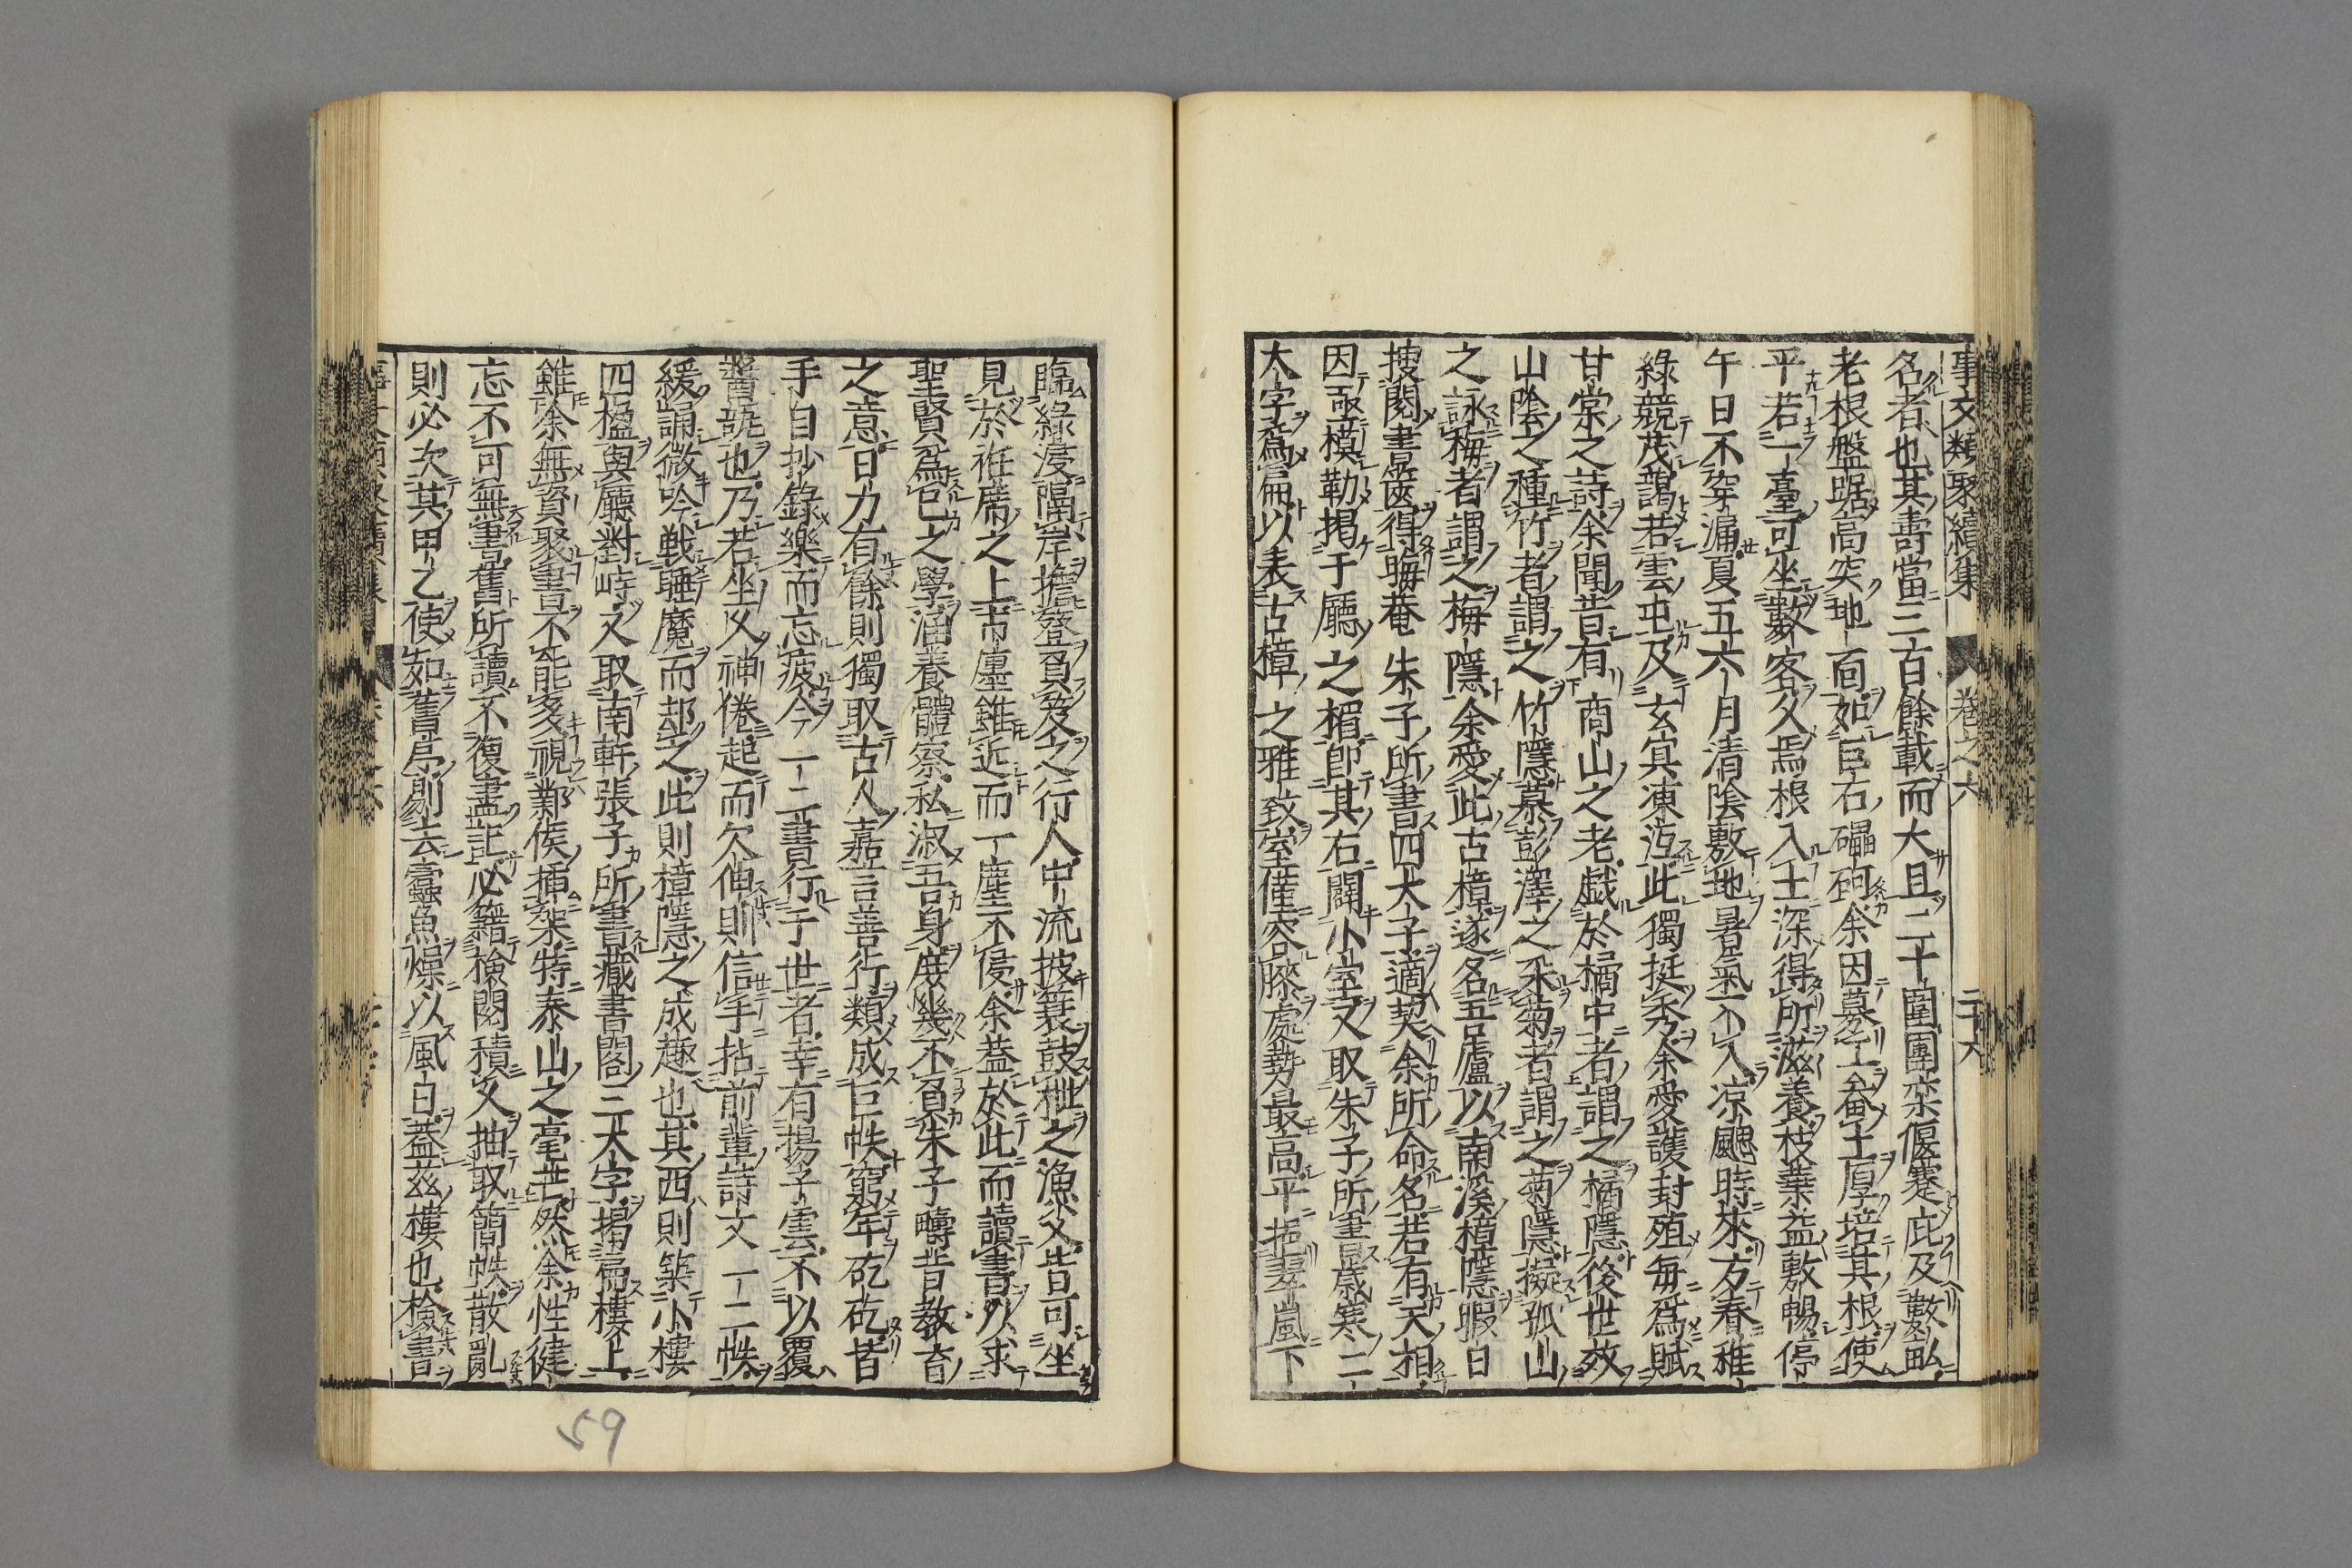 事文類聚續集 卷之六 二十六
名者也其壽當三百餘載而大且二十圍團欒偃蹇庇及數畆
老根盤踞高突地面如巨石礧砢余因募工畚土厚培其根使
平若一臺可坐數客久焉根入土深得所滋養枝葉益敷暢停
午日不穿漏夏五六月清陰敷地暑氣不入凉颸時來方春稚
綠競茂藹若雲屯及玄冥凍沍此獨挺秀余愛護封殖每爲賦
甘棠之詩余聞昔有商山之老戯於橘中者謂之橘隱後世效
山陰之種竹者謂之竹隱慕彭澤之采菊者謂之菊隱擬孤山
之詠梅者謂之梅隱余愛此古樟遂名吾廬以南溪樟隱暇日
搜閱書匳得晦菴朱子所書四大字適契余所命名若有天相
因亟模勒揭于廳之楣即其右闢小室又取朱子所書歲寒二
大字爲扁以表古樟之雅致室僅容膝處勢最高平挹翠嵐下
臨綠浸隔岸擔簦負笈之行人中流披簑鼓枻之漁父皆可坐
見於袵席之上市廛雖近而一塵不侵余葢於此而讀書以求
聖賢爲己之學涵養體察私淑吾身庶幾不負朱子疇昔教育
之意日力有餘則獨取古人嘉言善行類成巨帙窮年矻矻皆
手自抄錄樂而忘疲今一二書行于世者幸有揚子雲不以覆
醬譏也乃若坐久神倦起而欠伸則信手拈前輩詩文一二帙
緩誦微吟戰睡魔而却之此則樟隱之成趣也其西則築小樓
四楹與廳對峙又取南軒張子所書藏書閣三大字揭扁樓上
雖余無資聚書不能多視鄴侯挿架特泰山之毫芒然余性健
忘不可無書舊所讀不復盡記必籍檢閱積久抽取簡帙散亂
則必次其甲乙使如舊序剔去蠧魚燥以風日葢茲樓也檢書
59